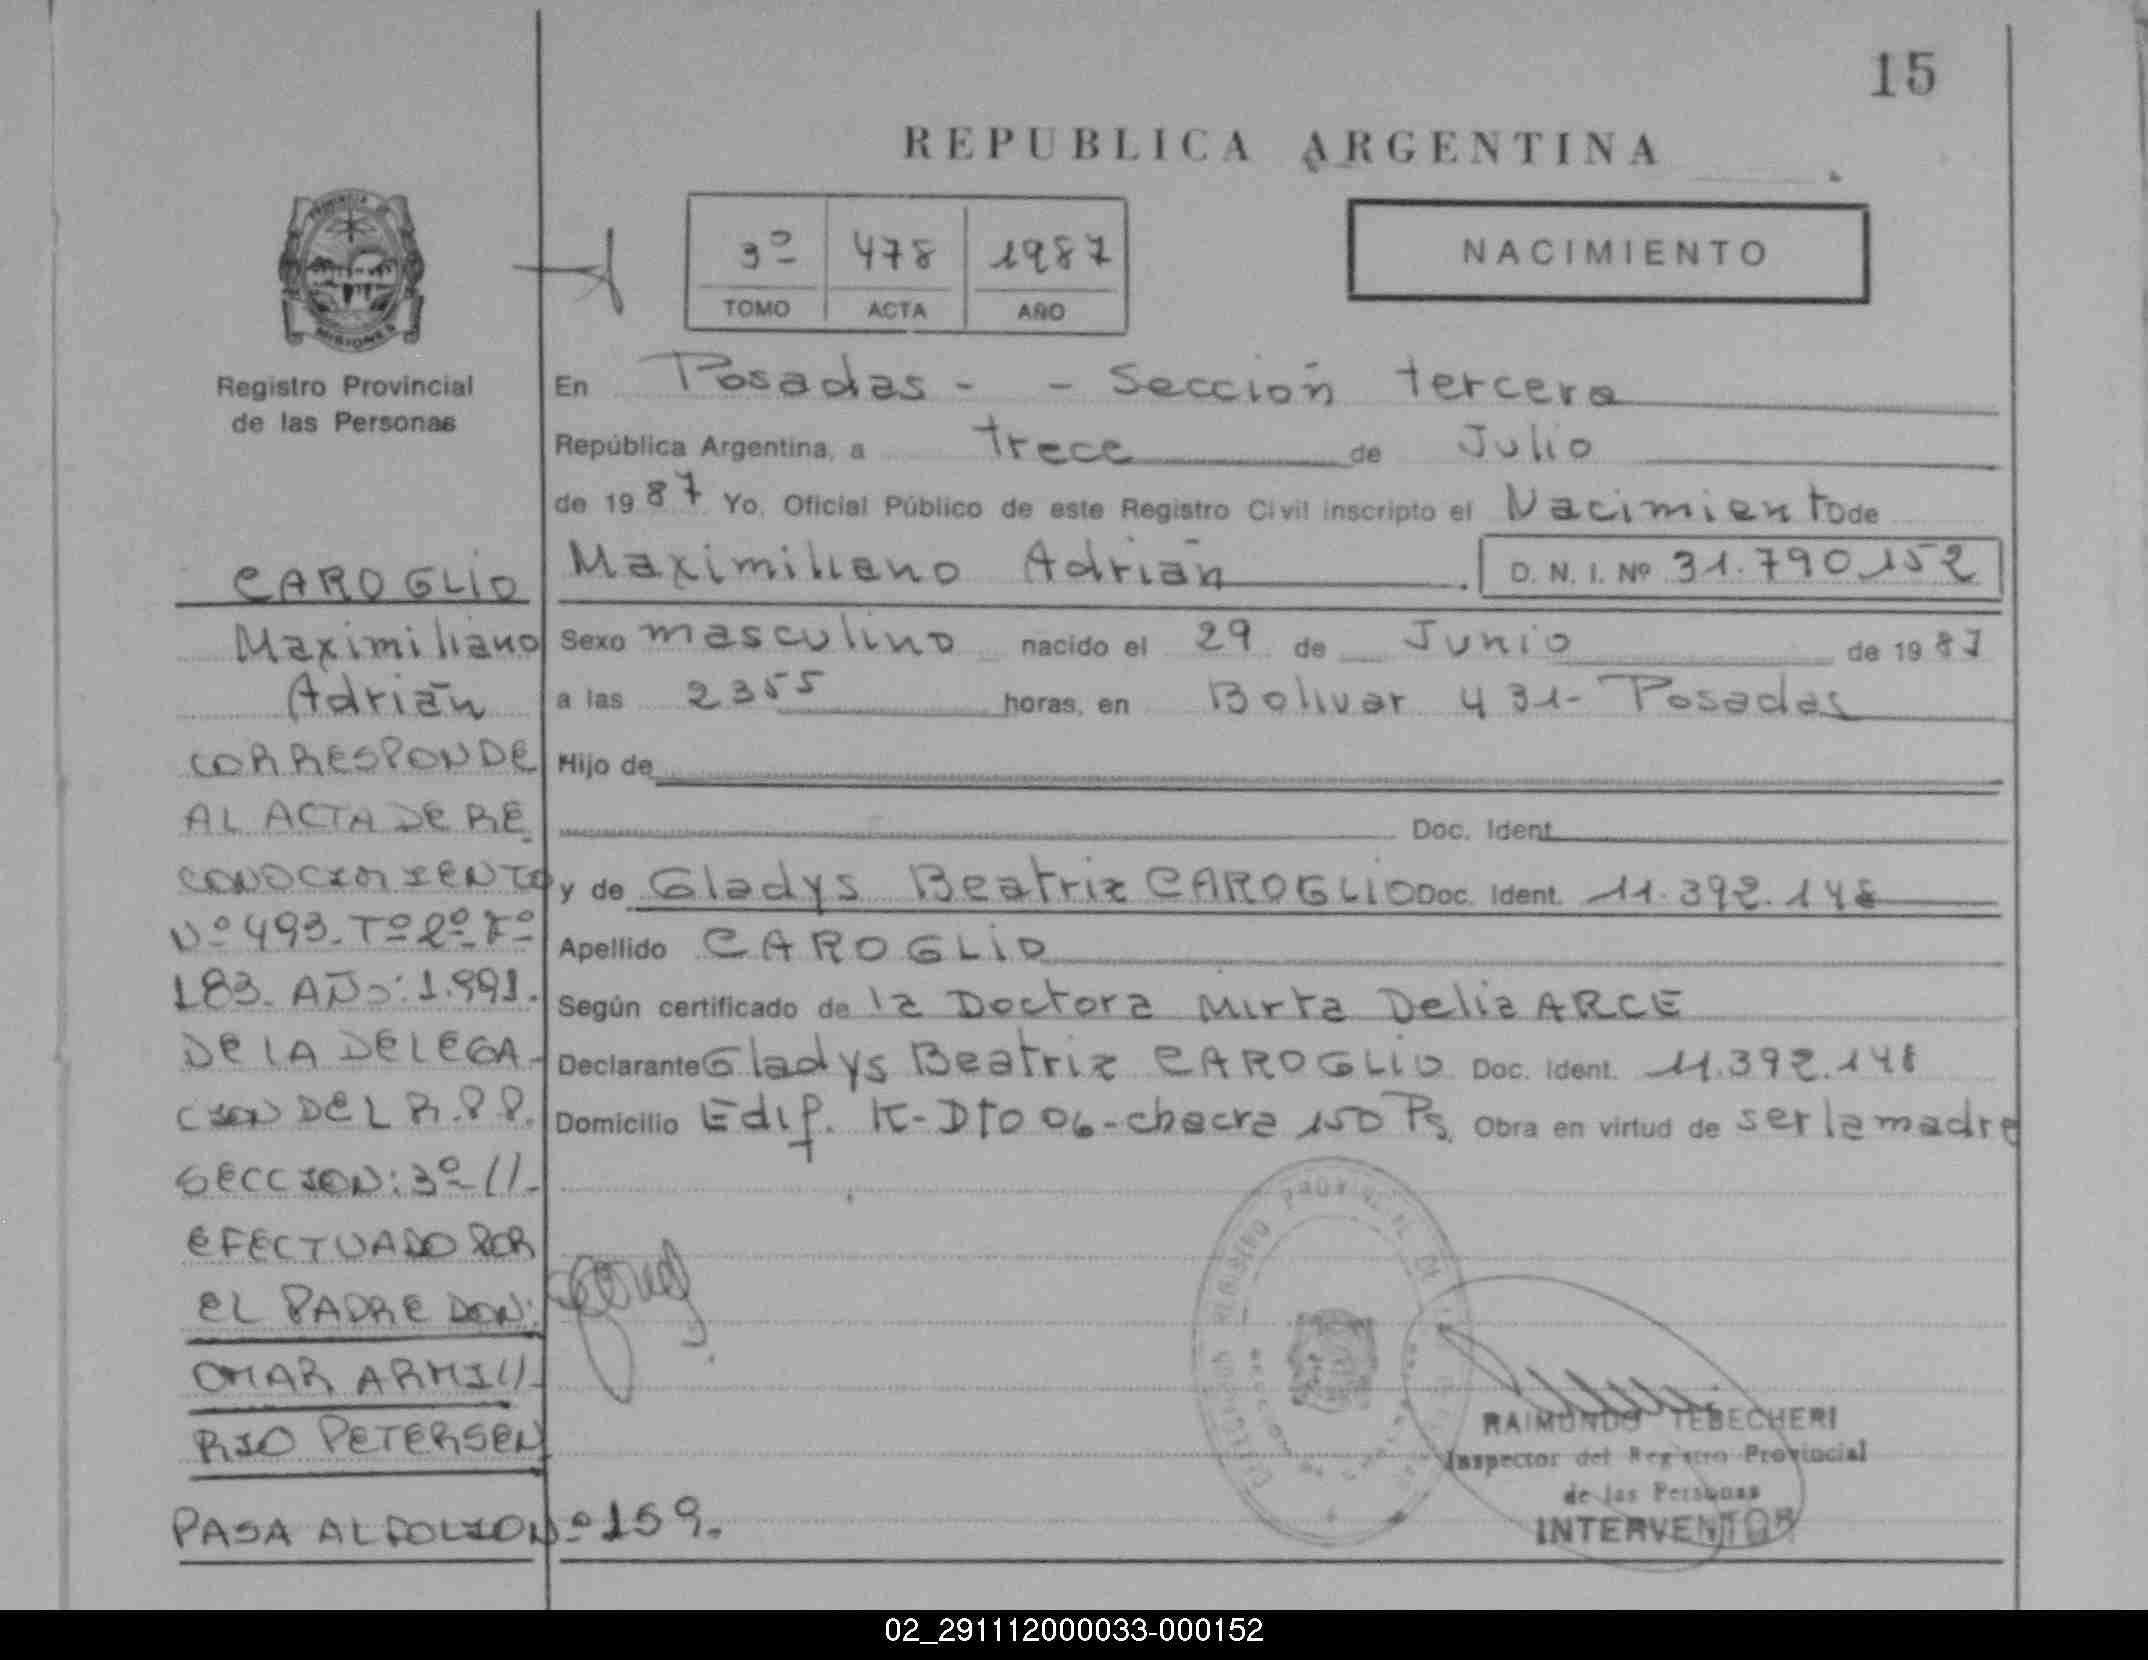 15
REPUBLICA ARGENTINA
3º 478 1987
TOMO ACTA AÑO
NACIMIENTO
MISIONES
Registro Provincial
de las Personas
En Posadas - - Sección tercera
República Argentina, a trece de Julio
de 1987 Yo, Oficial Público de este Registro Civil inscripto el Nacimiento de
Maximiliano Adrián D. N. I. Nº 31.790.152
Sexo masculino nacido el 29 de Junio de 1987
a las 2355 horas, en Bolivar 431- Posadas
Hijo de
Doc. Ident.
y de Gladys Beatriz CAROGLIO Doc. Ident. 11.392.148
Apellido CAROGLIO
Según certificado de la Doctora Mirta Delia ARCE
Declarante Gladys Beatriz CAROGLIO Doc. Ident. 11.392.148
Domicilio Edif. K-Dto 06-chacra 150 Ps. Obra en virtud de ser la madre
CAROGLIO
Maximiliano
Adrián
CORRESPONDE
AL ACTA DE RE
CONOCIMIENTO
Nº 493. Tº 2º Fº
183. AÑO: 1.991.
DE LA DELEGA-
CION DEL R.P.P.
SECCION: 3º //-
EFECTUADO POR
EL PADRE DON:
OMAR ARMIN//-
RIO PETERSEN
PASA AL FOLIO Nº 159.
RAIMUNDO TEBECHERI
Inspector del Registro Provincial
de las Personas
INTERVENTOR
02_291112000033-000152